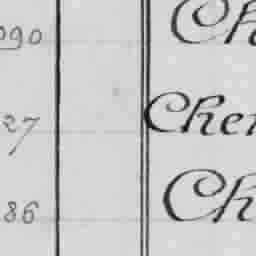 090 Ch
27 Cher
86 Ch